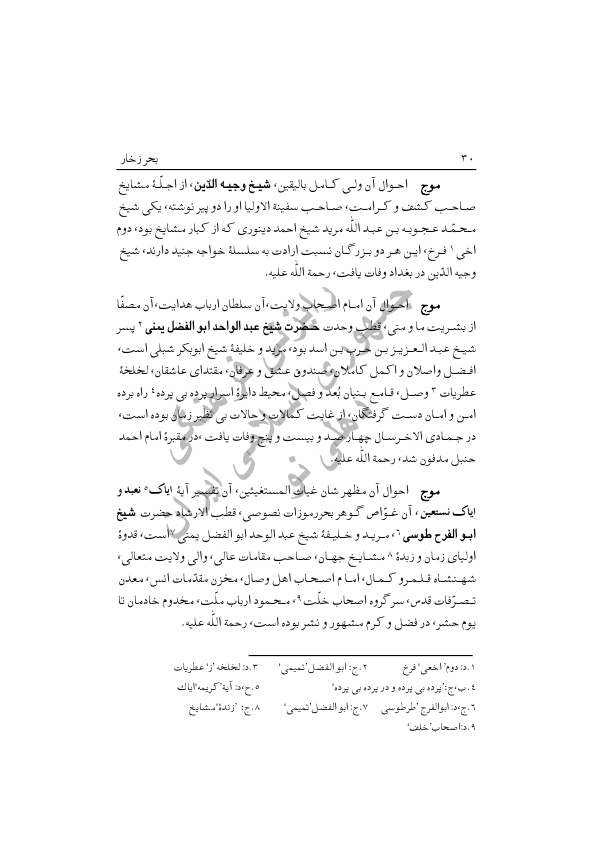 ۳۰ بحر زخار
موج احوال آن ولی کامل بالیقین، شیخ وجیه الدّین، از اجلّهٔ مشایخ
صاحب کشف و کرامت، صاحب سفینة الاولیا او را دو پیر نوشته، یکی شیخ
محمّد عجوبه بن عبد اللّٰه مرید شیخ احمد دینوری که از کبار مشایخ بود، دوم
اخی ۱ فرخ، این هر دو بزرگان نسبت ارادت به سلسلهٔ خواجه جنید دارند، شیخ
وجیه الدّین در بغداد وفات یافت، رحمة اللّٰه علیه.
موج احوال آن امام اصحاب ولایت، آن سلطان ارباب هدایت، آن مصفّا
از بشریت ما و منی، قطب وحدت حضرت شیخ عبد الواحد ابو الفضل یمنی ۲ پسر
شیخ عبد العزیز بن حرب بن اسد بود، مرید و خلیفهٔ شیخ ابوبکر شبلی است،
افضل واصلان و اکمل کاملان، صندوق عشق و عرفان، مقتدای عاشقان، لخلخهٔ
عطریات ۳ وصل، قامع بنیان بُعد و فصل، محیط دایرهٔ اسرار پرده بی پرده۴ راه برده
امن و امان دست گرفتگان، از غایت کمالات و حالات بی نظیر زمان بوده است،
در جمادی الاخر سال چهار صد و بیست و پنج وفات یافت، در مقبرهٔ امام احمد
حنبل مدفون شد، رحمة اللّٰه علیه.
موج احوال آن مظهر شان غیاث المستغیثین، آن تفسیر آیهٔ ایاک۵ نعبد و
ایاک نستعین، آن غوّاص گوهر بحر رموزات نصوصی، قطب الارشاد حضرت شیخ
ابو الفرح طوسی ۶، مرید و خلیفهٔ شیخ عبد الواحد ابو الفضل یمنی ۷است، قدوهٔ
اولیای زمان و زبدهٔ ۸ مشایخ جهان، صاحب مقامات عالی، والی ولایت متعالی،
شهنشاه قلمرو کمال، امام اصحاب اهل وصال، مخزن مقدّمات انس، معدن
تصرّفات قدس، سرگروه اصحاب خلّت ۹، محمود ارباب ملّت، مخدوم خادمان تا
یوم حشر، در فضل و کرم مشهور و نشر بوده است، رحمة اللّٰه علیه.
۱.د: دوم’ اخعی‘ فرخ ۲.ج: ابو الفضل’تمیمی‘ ۳.د: لخلخه ’ز‘ عطریات
۴.ب،ج: ’پرده بی پرده و در پرده بی پرده‘ ۵.ج،د: آیة’کریمه‘ایاک
۶.ج،د: ابوالفرج ’طرطوسی ۷.ج: ابو الفضل’تمیمی‘ ۸.ج: ’زندهٔ‘ مشایخ
۹.د: اصحاب’خلف‘
رایزنی فرهنگی
جمهوری اسلامی ایران
دهلی نو